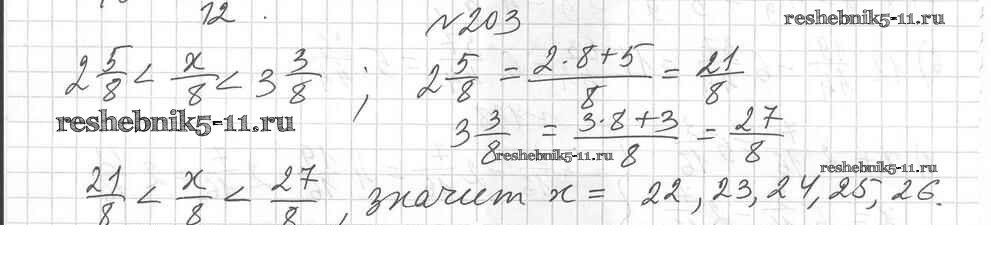 12.
№203
reshebnik5-11.ru
2 5/8 < x/8 < 3 3/8 ; 2 5/8 = (2·8+5)/8 = 21/8
reshebnik5-11.ru
3 3/8 = (3·8+3)/8 = 27/8
reshebnik5-11.ru
reshebnik5-11.ru
21/8 < x/8 < 27/8, значит x = 22, 23, 24, 25, 26.